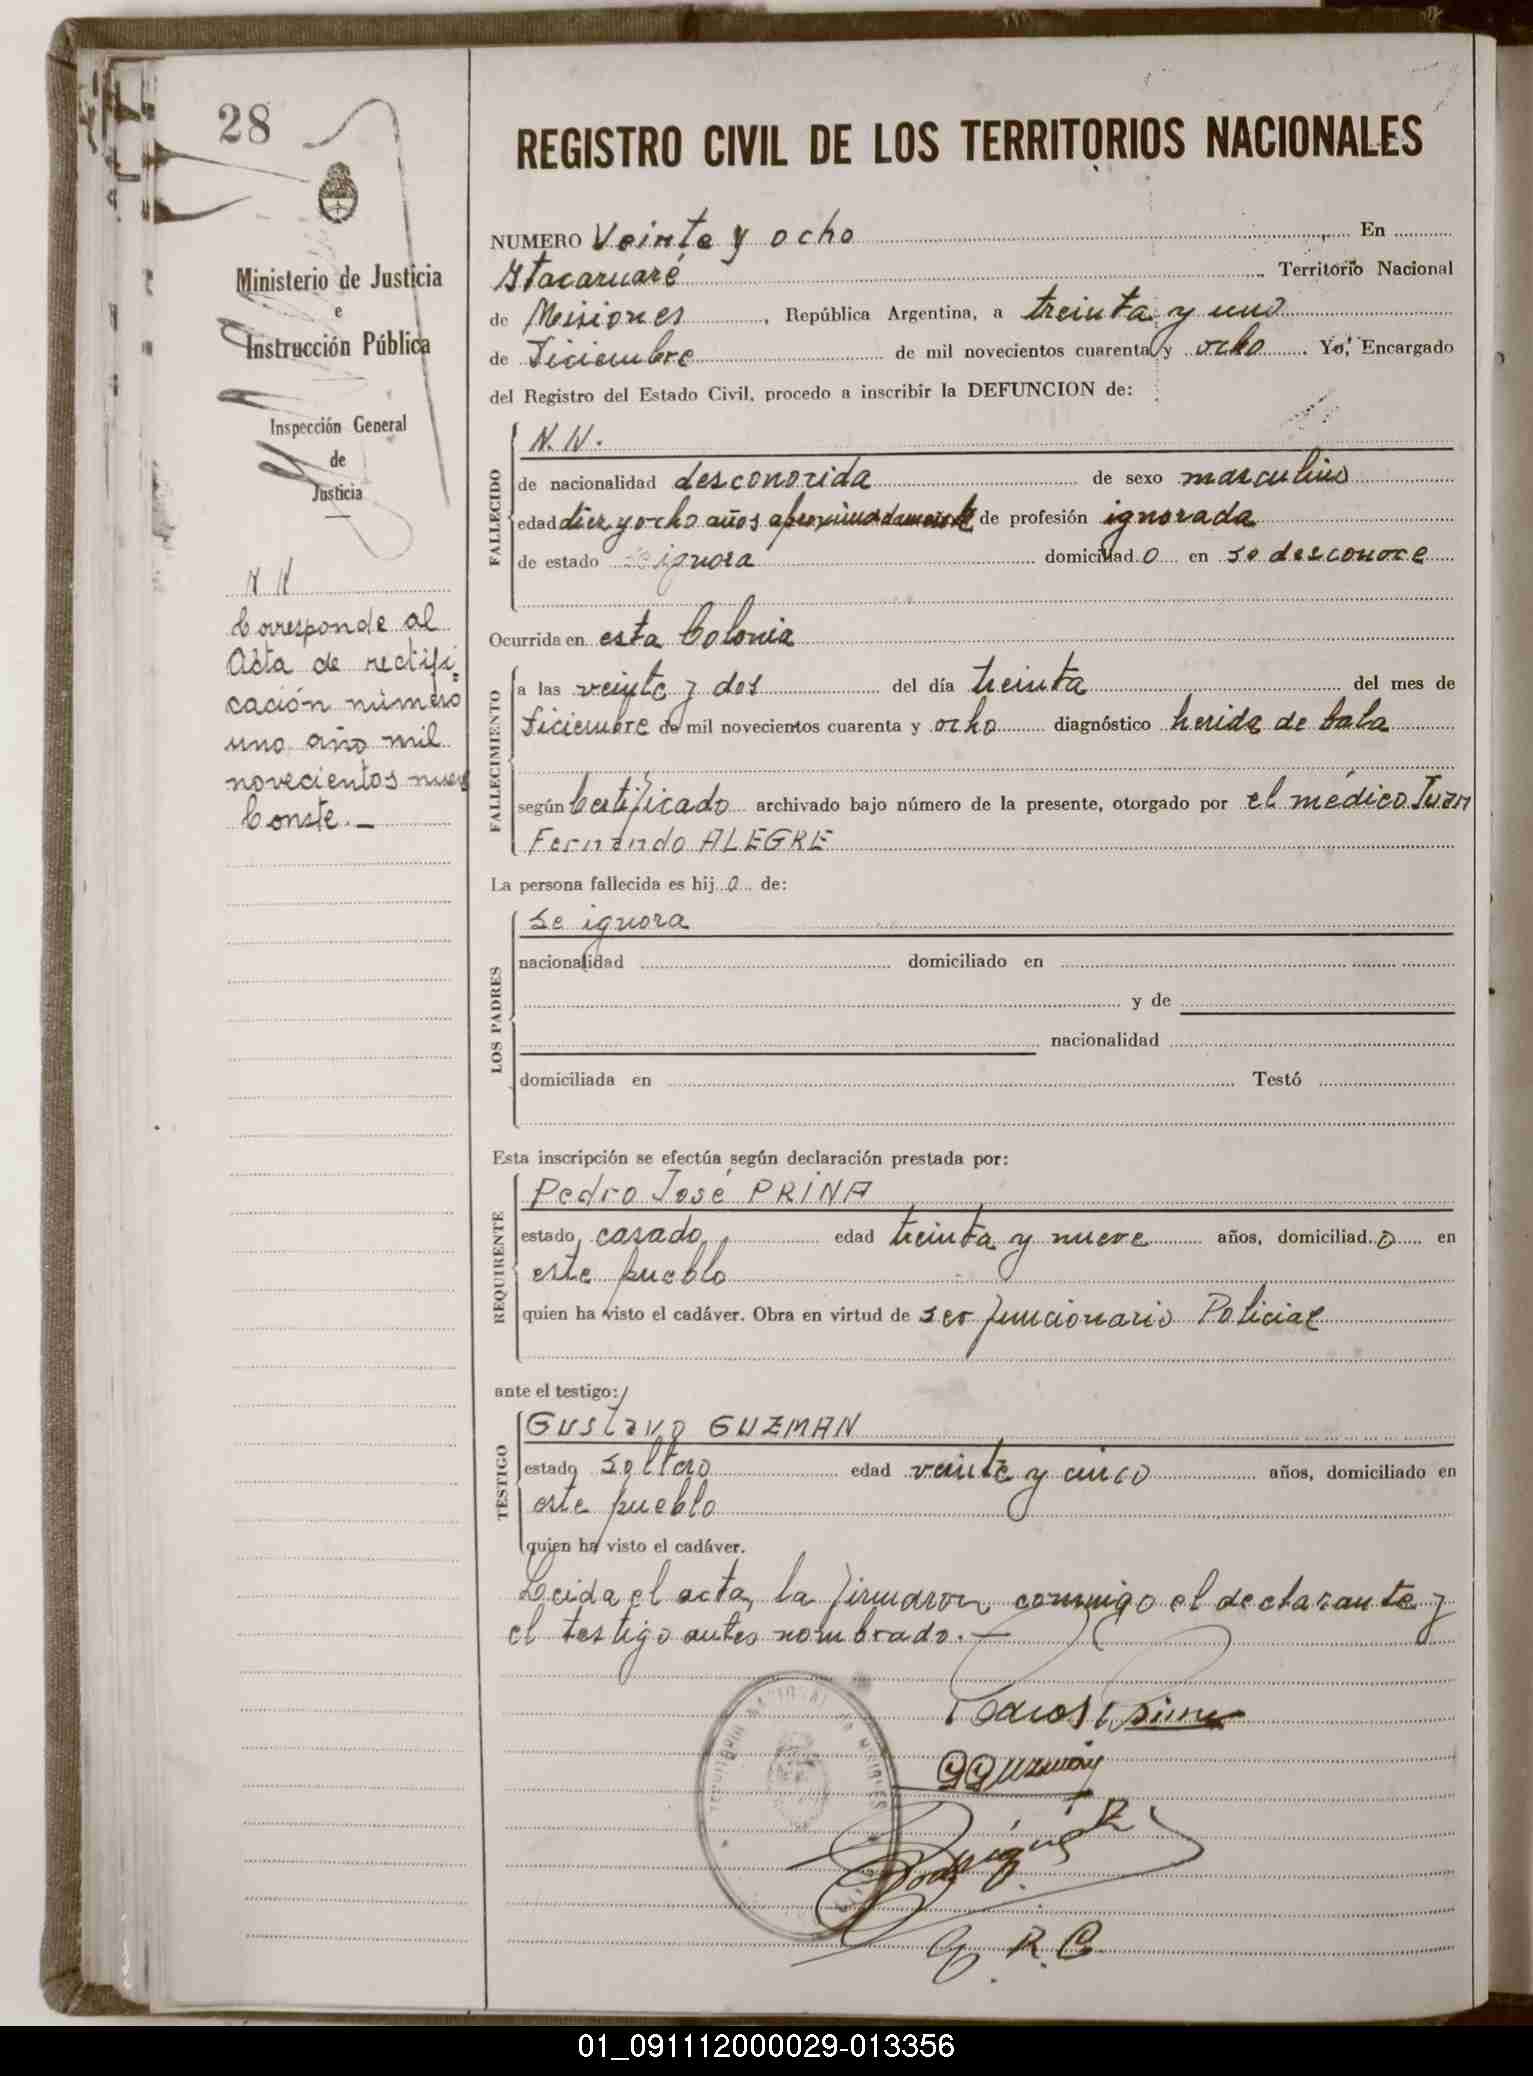 28
Ministerio de Justicia
e
Instrucción Pública
Inspección General
de
Justicia
N N
Corresponde al
Acta de rectifi-
cación número
uno año mil
novecientos nueve
Conste.-
REGISTRO CIVIL DE LOS TERRITORIOS NACIONALES
NUMERO Veinte y ocho En
Itacaruaré Territorio Nacional
de Misiones, República Argentina, a treinta y uno
de Diciembre de mil novecientos cuarenta y ocho. Yo, Encargado
del Registro del Estado Civil, procedo a inscribir la DEFUNCION de:
FALLECIDO
N.N.
de nacionalidad desconocida de sexo masculino
edad diez y ocho años aproximadamente de profesión ignorada
de estado se ignora domiciliad o en se desconoce
Ocurrida en esta Colonia
FALLECIMIENTO
a las veinte y dos del día treinta del mes de
Diciembre de mil novecientos cuarenta y ocho diagnóstico herida de bala
según Certificado archivado bajo número de la presente, otorgado por el médico Juan
Fernando ALEGRE
La persona fallecida es hij o de:
LOS PADRES
se ignora
nacionalidad domiciliado en
y de
nacionalidad
domiciliada en Testó
Esta inscripción se efectúa según declaración prestada por:
REQUIRENTE
Pedro José PRINA
estado casado edad treinta y nueve años, domiciliad o en
este pueblo
quien ha visto el cadáver. Obra en virtud de ser funcionario Policial
ante el testigo:
TESTIGO
Gustavo GUZMAN
estado soltero edad veinte y cinco años, domiciliado en
este pueblo
quien ha visto el cadáver.
Leida el acta, la firmaron conmigo el declarante y
el testigo antes nombrado.-
TERRITORIO NACIONAL DE MISIONES
GGuzmán
Rodríguez
R. C.
01_091112000029-013356